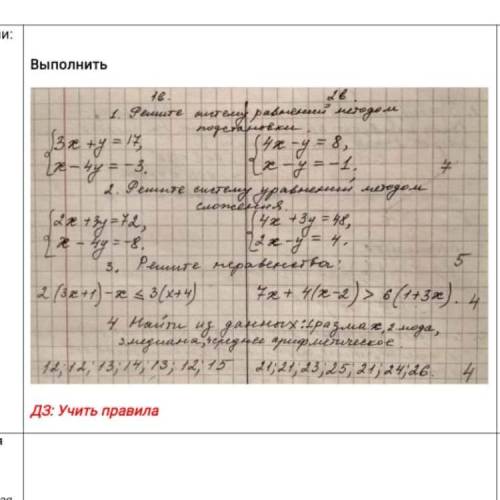 ии:
Выполнить
1в. 2в.
1. Решите систему равнений методом
подстановки.
3x + y = 17, 4x - y = 8,
x - 4y = -3. x - y = -1. 7
2. Решите систему уравнений методом
сложения
2x + 3y = 72, 4x + 3y = 48,
x - 4y = -8. 2x - y = 4.
3. Решите неравенства: 5
2(3x+1)-x ⩽ 3(x+4) 7x + 4(x-2) > 6(1+3x). 4
4 Найти из данных: 1размах, 2 мода,
3медиана, среднее арифметическое
12; 12; 13; 14; 13; 12; 15 21; 21; 23; 25; 21; 24; 26. 4
ДЗ: Учить правила
я